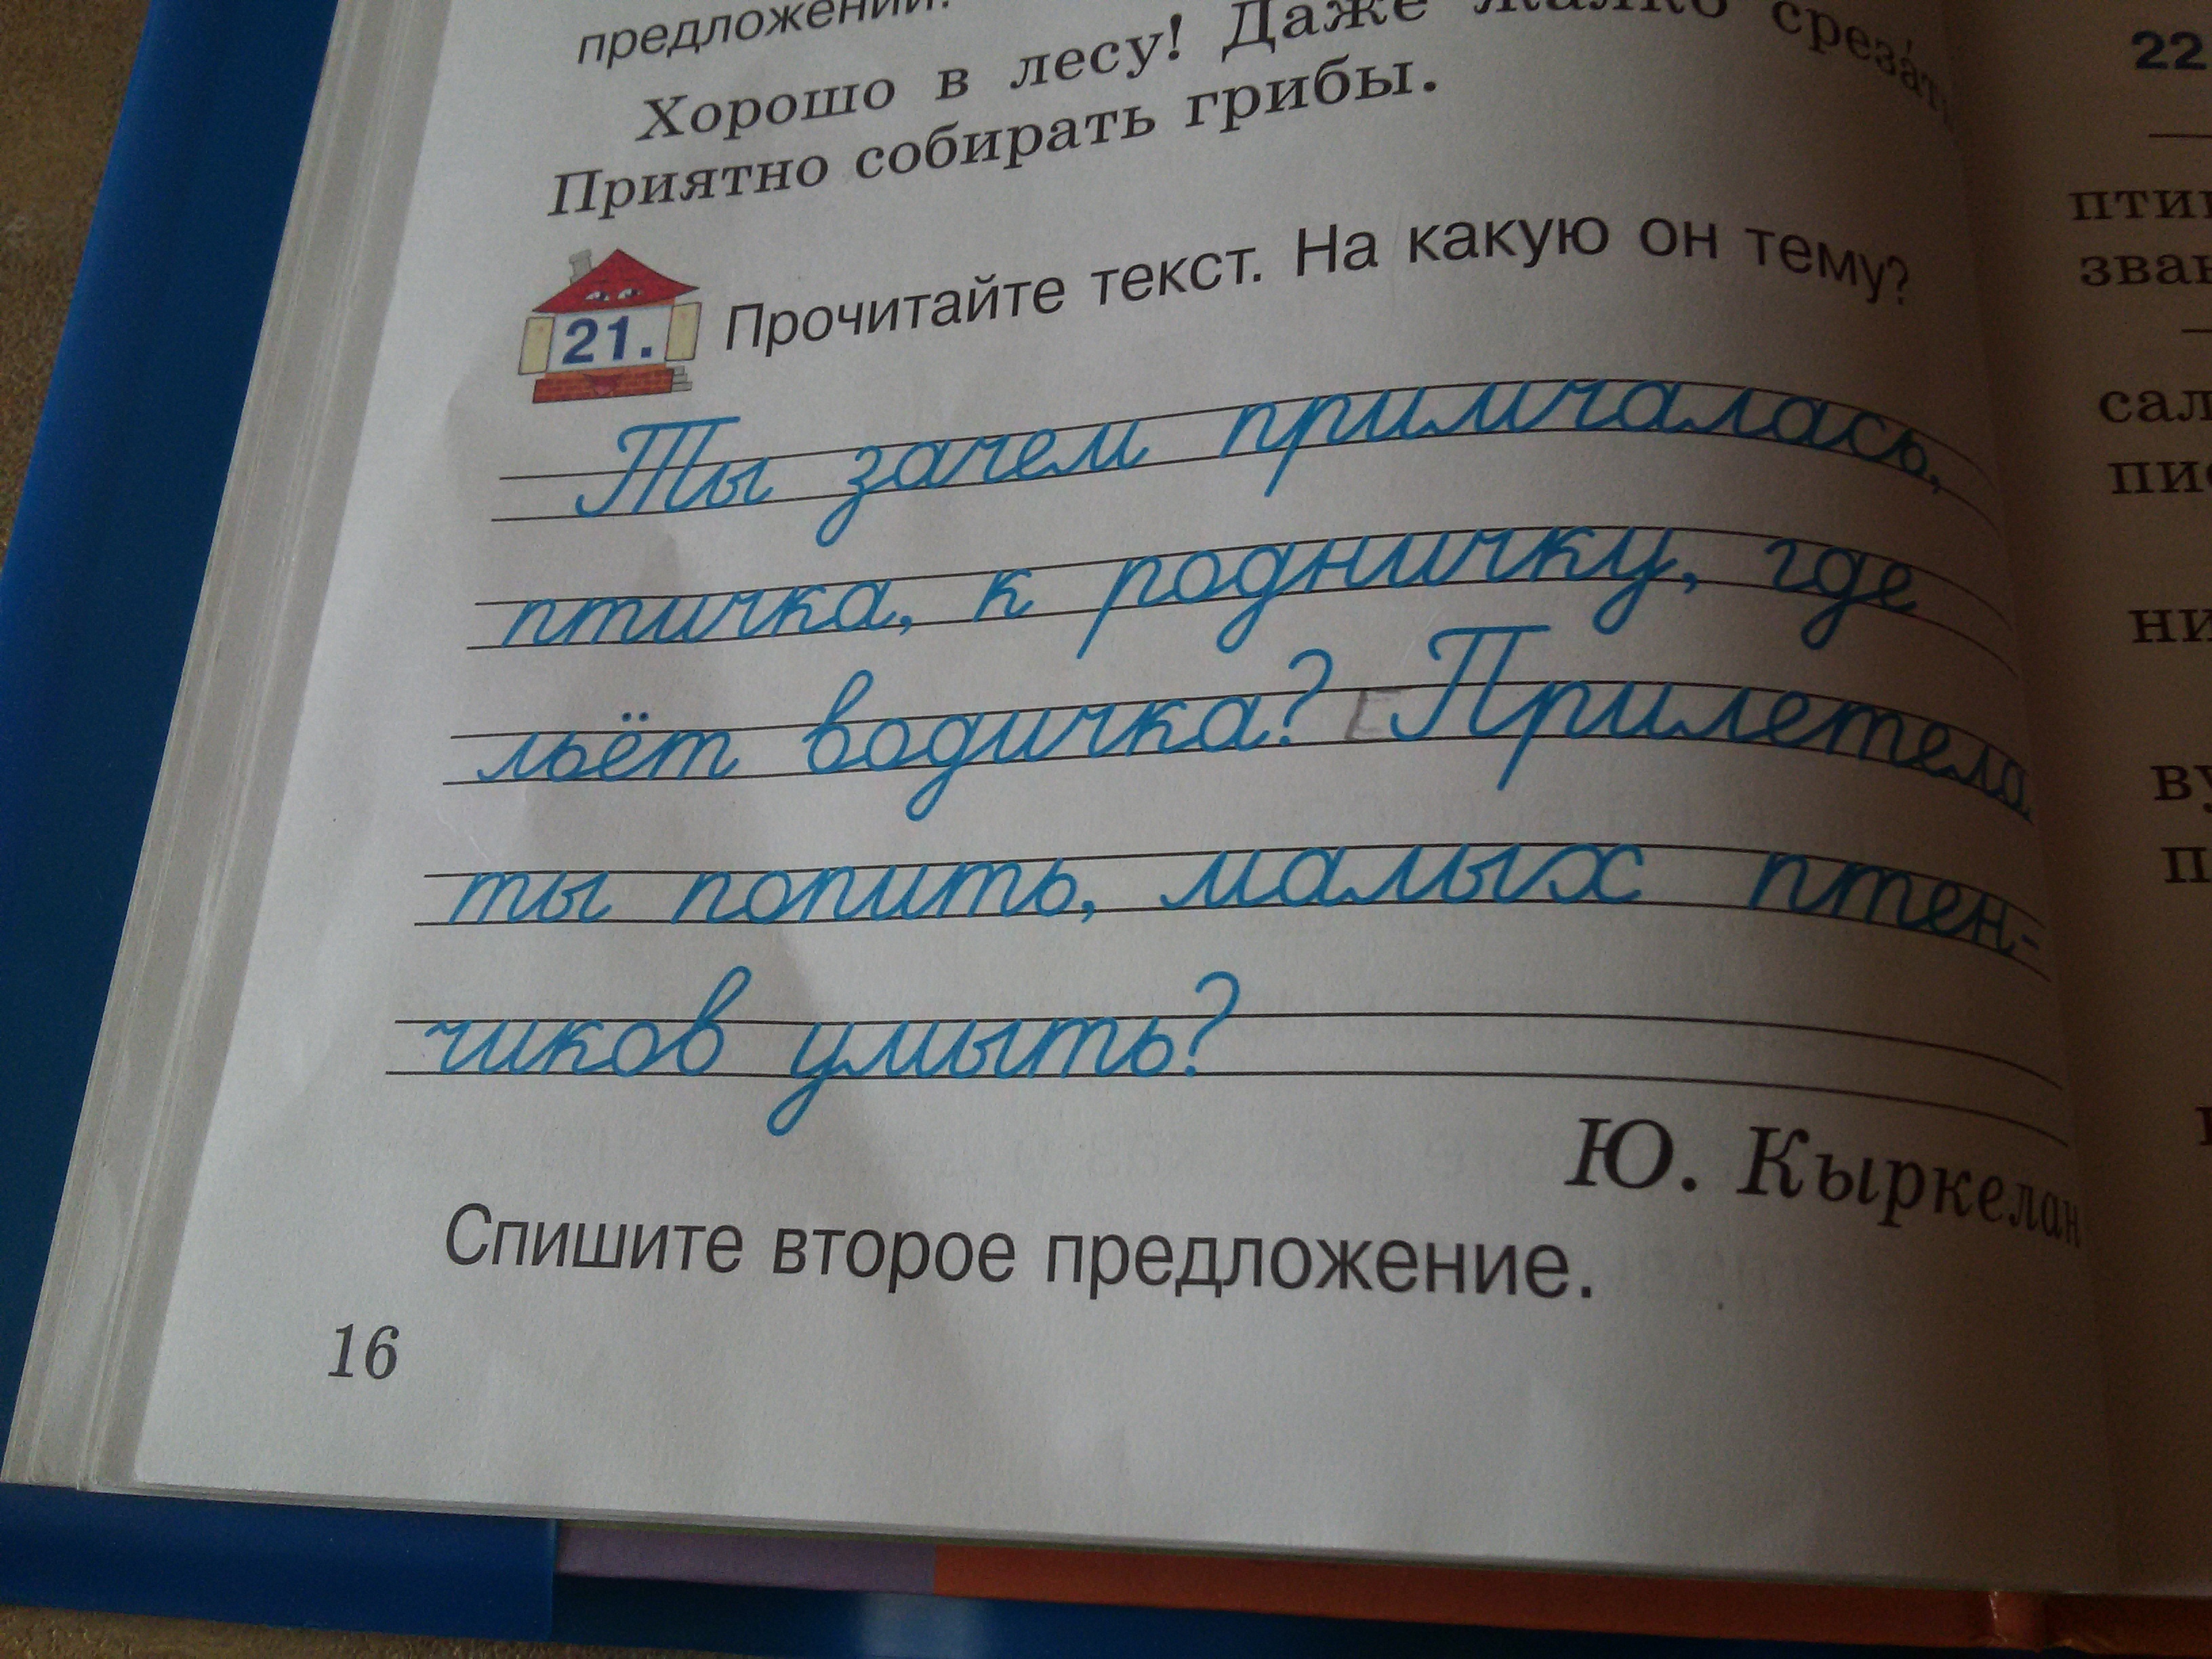 предложений.
Хорошо в лесу! Даже жалко срезать
Приятно собирать грибы.
21. Прочитайте текст. На какую он тему?
Ты зачем примчалась,
птичка, к родничку, где
льёт водичка? Е Прилетела
ты попить, малых птен-
чиков умыть?
Ю. Кыркелан
Спишите второе предложение.
16
22